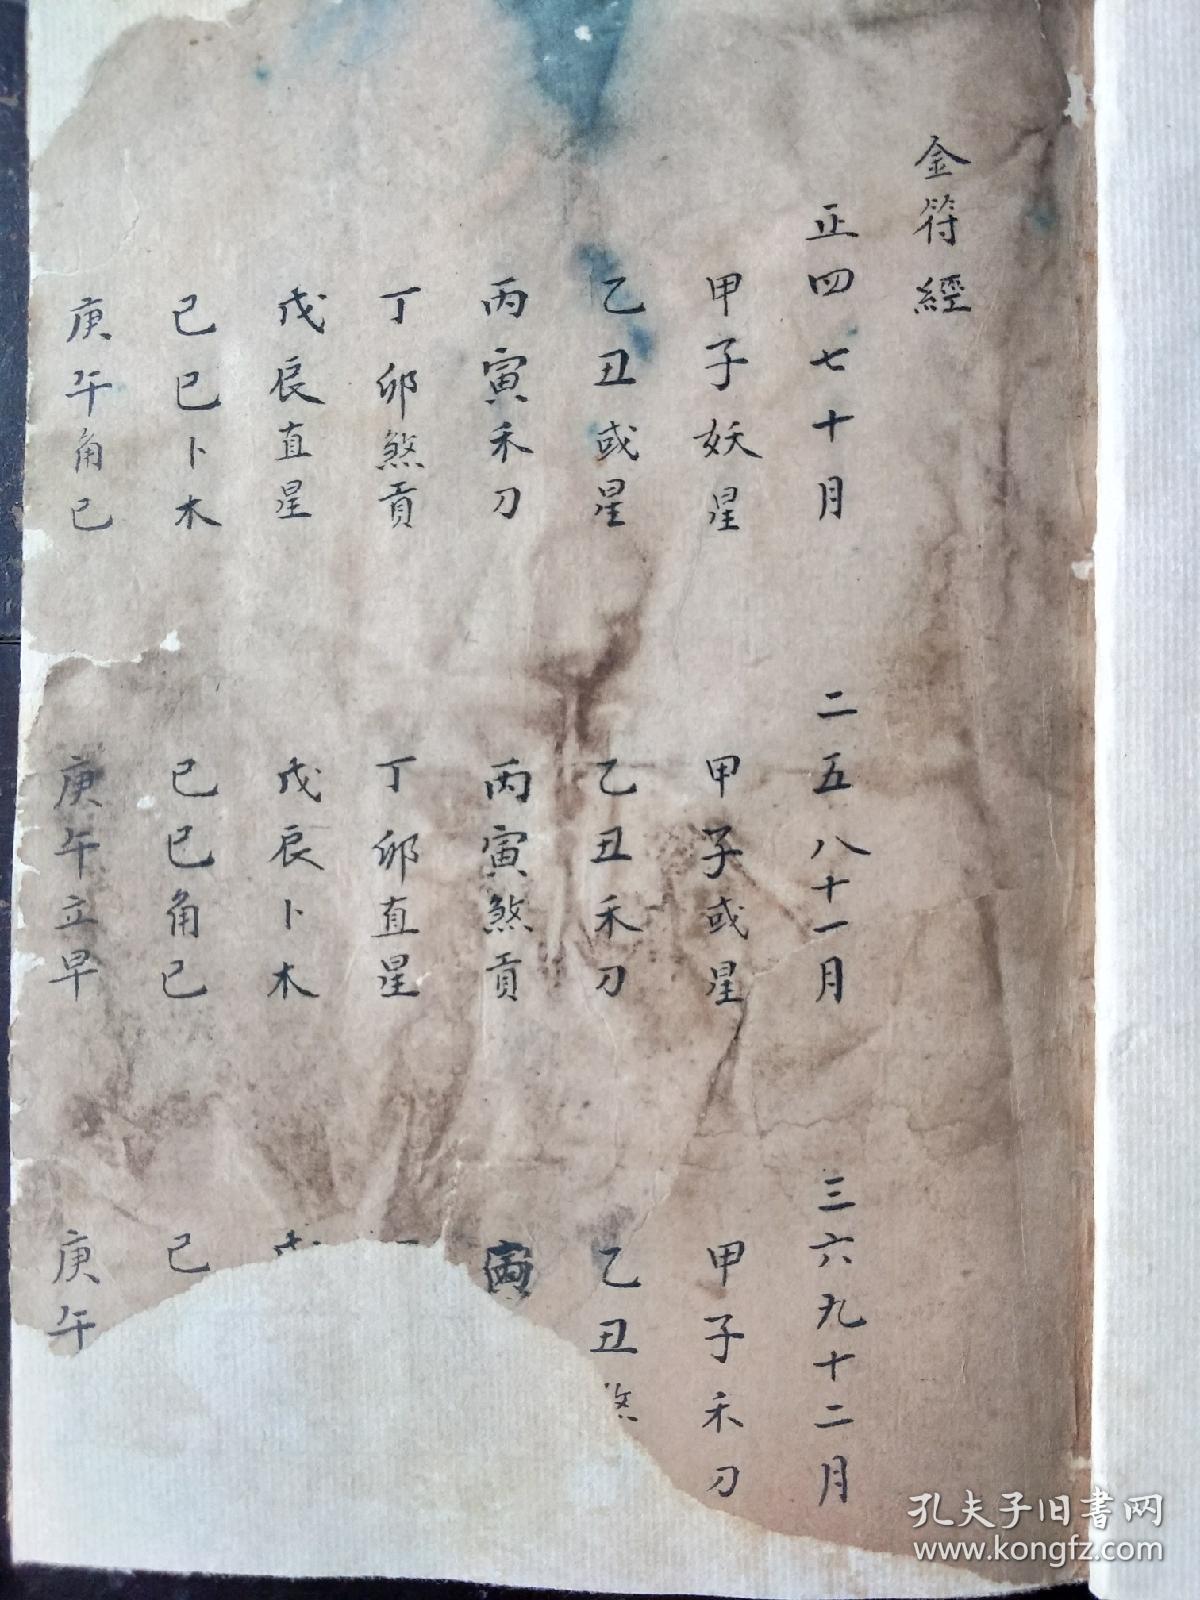 金符經
正四七十月　二五八十一月　三六九十二月
甲子妖星　甲子或星　甲子禾刀
乙丑或星　乙丑禾刀　乙丑煞
丙寅禾刀　丙寅煞貢　寅
丁卯煞貢　丁卯直星
戊辰直星　戊辰卜木
己巳卜木　己巳角己　己
庚午角己　庚午立早　庚午
孔夫子旧书网
www.kongfz.com